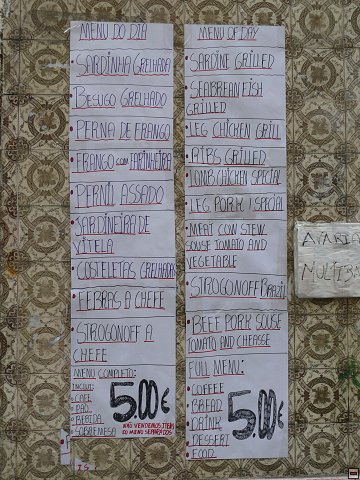 MENU DO DIA
SARDINHA GRELHADA
BESUGO GRELHADO
PERNA DE FRANGO
FRANGO COM FARINHEIRA
PERNIL ASSADO
JARDINEIRA DE
VITELA
COSTELETAS GRELHADA
FEBRAS A CHEFE
STROGONOFF A
CHEFE
MENU COMPLETO:
INCLUI:
CAFE
PÃO
BEBIDA
SOBREMESA
5.00€
NÃO VENDEMOS ITEM
DO MENU SEPARADOS
MENU OF DAY
SARDINE GRILLED
SEABREAN FISH
GRILLED
LEG CHICKEN GRILL
RIBS GRILLED
LOMB CHICKEN SPECIAL
LEG PORK SPECIAL
MEAT COW STEW
SOUSE TOMATO AND
VEGETABLE
STROGONOFF BRAZIL
BEEF PORK SOUSE
TOMATO AND CHEASSE
FULL MENU:
COFFEE
BREAD
DRINK
DESSERT
FOOD
5.00€